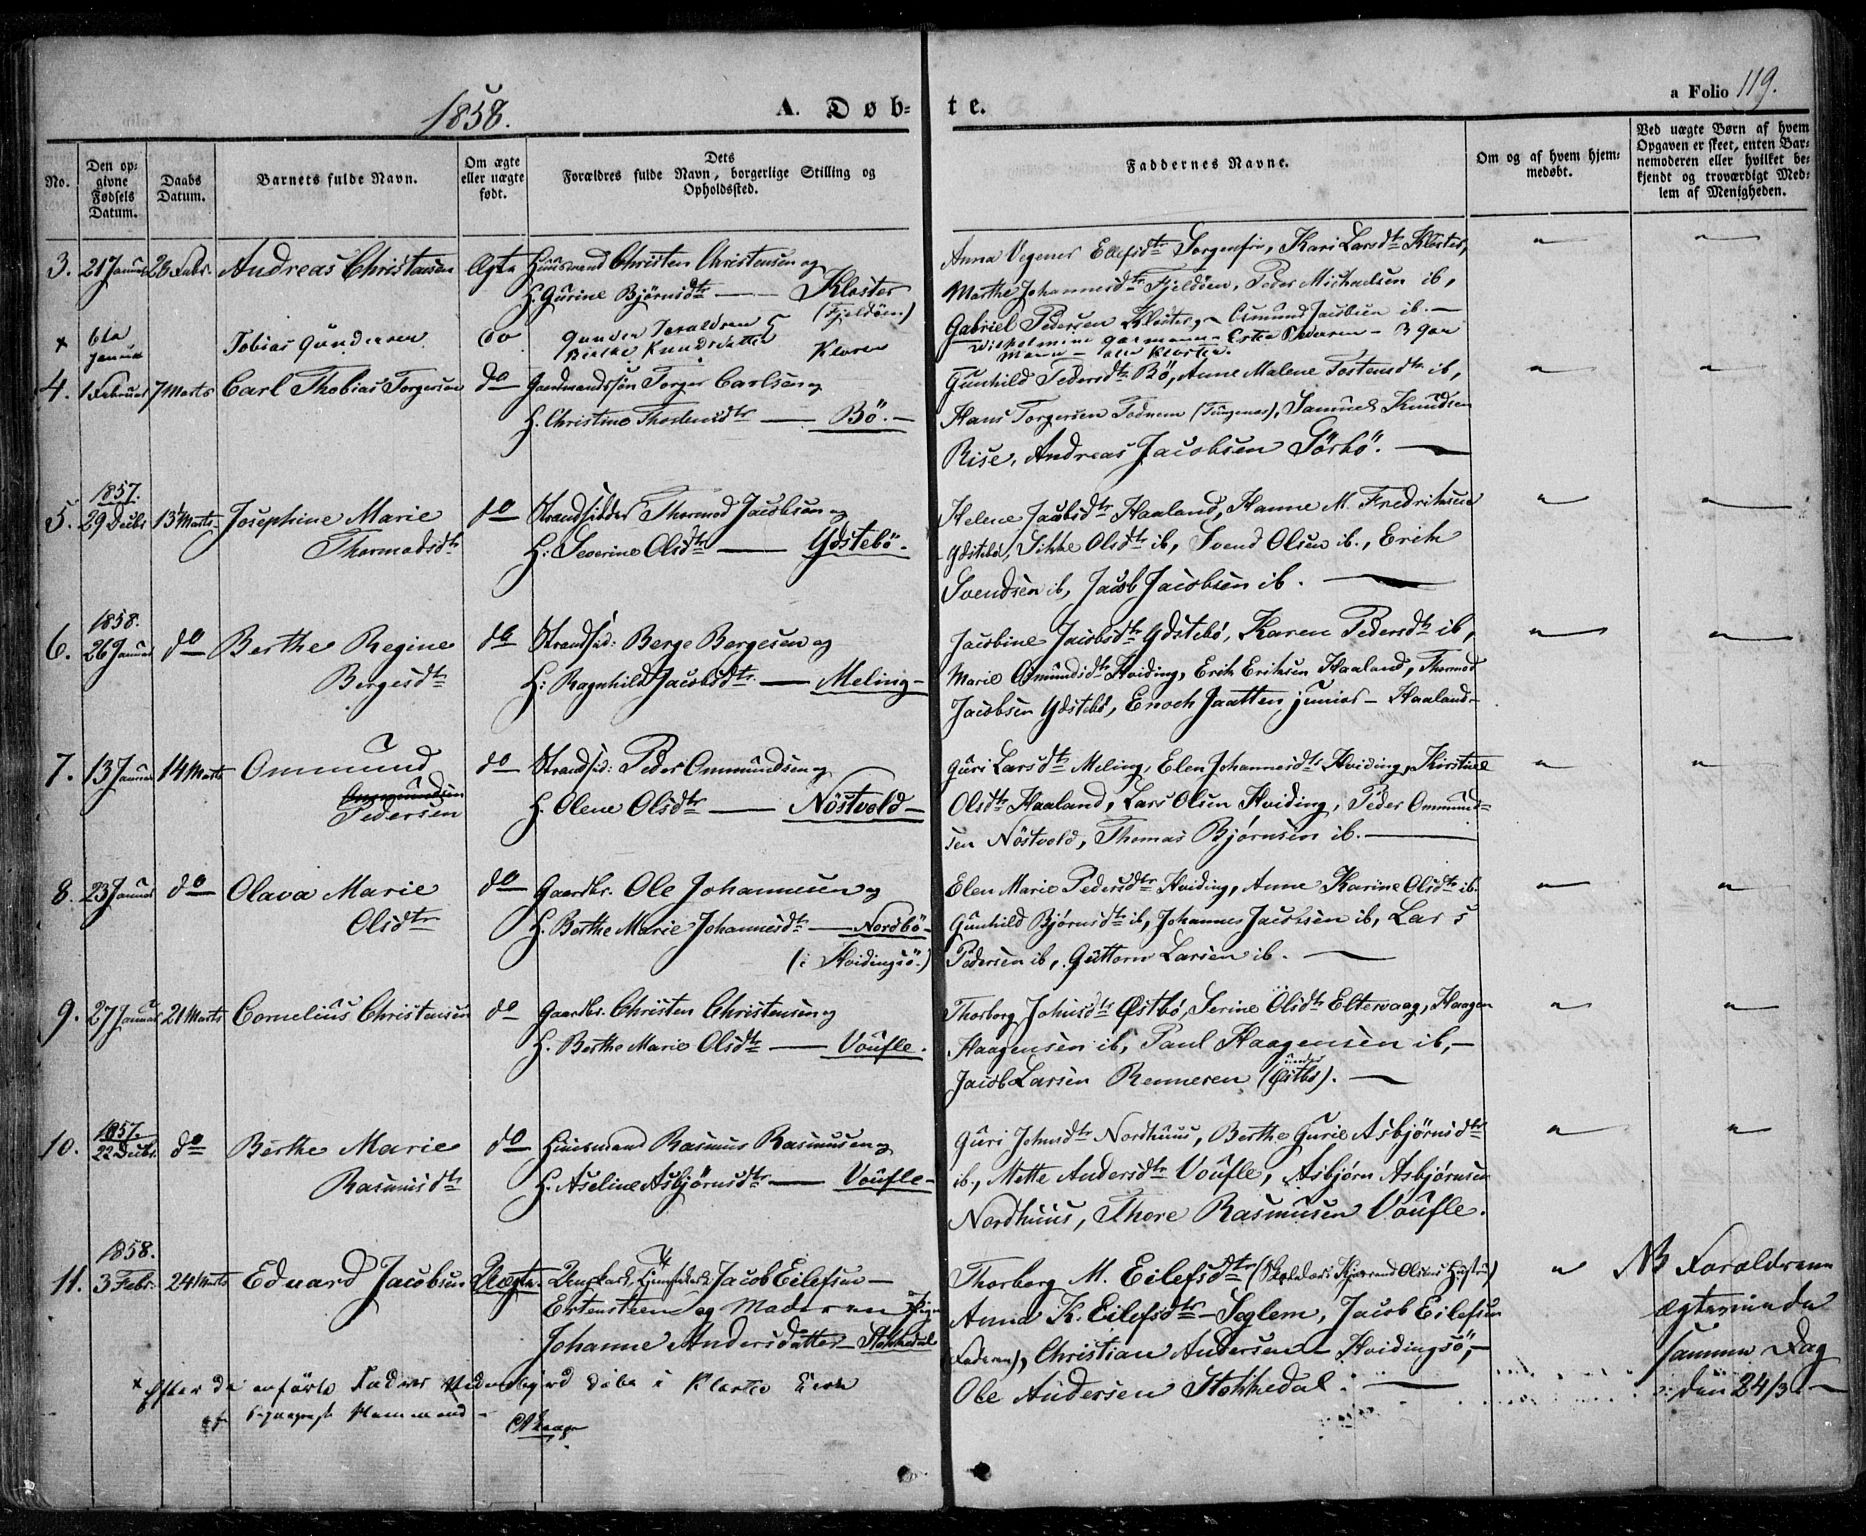 1858.
A. Døbte.
a Folio 119.
No.
Den opgivne Fødsels Datum.
Daabs Datum.
Barnets fulde Navn.
Om ægte eller uægte født.
Dets Forældres fulde Navn, borgerlige Stilling og Opholdssted.
Faddernes Navne.
Om og af hvem hjemmedøbt.
Ved uægte Børn af hvem Opgaven er skeet, enten Barnemoderen eller hvilket bekjendt og troværdigt Medlem af Menigheden.
3. 21 Januar 26 Febr. Andreas Christensen Ægte Huusmand Christen Christensen og
H. Gurine Bjørnsdtr — Kloster
(Fjeldøen)
Anna Vegener Ellefsdtr Sorgenfri, Kari Larsdtr Kloster,
Marthe Johannesdtr Fjeldøen, Peder Michaelsen ib,
Gabriel Pedersen Kloster, Osmund Jacobsen ib. —
x 6te Januar Tobias Gundersen do Gunder Toraldsen
Knudsdatter Kloster
4. 1 Februar 7 Marts Carl Thobias Torgersen do Gaardmandssøn Torger Carlsen og
H. Christine Thostensdtr — Bö. —
Gunhild Pedersdtr Bö, Anne Malene Tostensdtr ib,
Hans Torgersen Todnem (Tungenes), Samuel Knudsen
Rise, Andreas Jacobsen Sörbö. —
1857.
5. 29 Decbr 13 Marts Josephine Marie
Thormodsdtr
do Strandsidder Thormod Jacobsen og
H. Severine Olsdtr — Ydstebö.
Helene Jacobsdtr Haaland, Hanne M. Fredriksen
Ydstebö, Sikke Olsdtr ib, Svend Olsen ib., Erik
Svendsen ib, Jacob Jacobsen ib. —
1858.
6. 26 Januar do Berthe Regine
Bergesdtr
do Strandsid: Berge Bergesen og
H: Ragnhild Jacobsdtr. — Meling —
Jacobine Jacobsdtr Ydstebö, Karen Pedersdtr ib,
Marie Osmundsdtr Hviding, Erik Eriksen Haaland, Thormod
Jacobsen Ydstebö, Enoch Jaatten junior — Haaland —
7. 13 Januar 14 Marts Ommund
Ommundsen
Pedersen
do Strandsid: Peder Ommundsen og
H. Olene Olsdtr — Nöstvold —
Guri Larsdtr Meling, Elen Johannesdtr Hviding, Kirstine
Olsdtr Haaland, Lars Olsen Hviding, Peder Ommund=
sen Nöstvold, Thomas Bjørnsen ib. —
8. 23 Januar do Olava Marie
Olsdtr
do Gaardbr. Ole Johannesen og
H. Berthe Marie Johannesdtr — Nordbö —
(i Hvidingsö.)
Elen Marie Pedersdtr Hviding, Anne Karine Olsdtr ib.
Gunhild Bjørnsdtr ib, Johannes Jacobsen ib, Lars
Pedersen ib, Guttorm Larsen ib. —
9. 27 Januar 21 Marts Cornelius Christensen do Gaardbr. Christen Christensen og
H. Berthe Marie Olsdtr — Voufle.
Thorborg Johnsdtr Østbö, Serine Olsdtr Eltervaag, Haagen
Haagensen ib, Paul Haagensen ib, —
Jacob Larsen Renneren (under Østbö). —
1857.
10. 22 Decbr. do Berthe Marie
Rasmusdtr
do Huusmand Rasmus Rasmusen og
H. Aseline Asbjørnsdtr — Voufle —
Guri Johnsdtr Nordhuus, Berthe Gurie Asbjørnsdtr
ib, Mette Andersdtr Voufle, Asbjørn Asbjørnsen
Nordhuus, Thore Rasmusen Voufle.
1858.
11. 3 Febr. 24 Marts Eduard Jacobsen Uægte Ungkarl, Jacob Eilefsen —
Ertensteen og Moderen Pigen
Johanne Andersdatter Stokkedal
Thorborg M. Eilefsdtr (Olsens Hustru)
Anna K. Eilefsdtr — Seglem, Jacob Eilefsen
(Faderen), Christian Andersen — Hvidingsö, —
Ole Andersen Stokkedal. —
NB Forældrene
ægteviede
samme Dag
: den 24/3. —
x Efter de anførte Fadres Vidnesbyrd døbt i Kloster Kirke